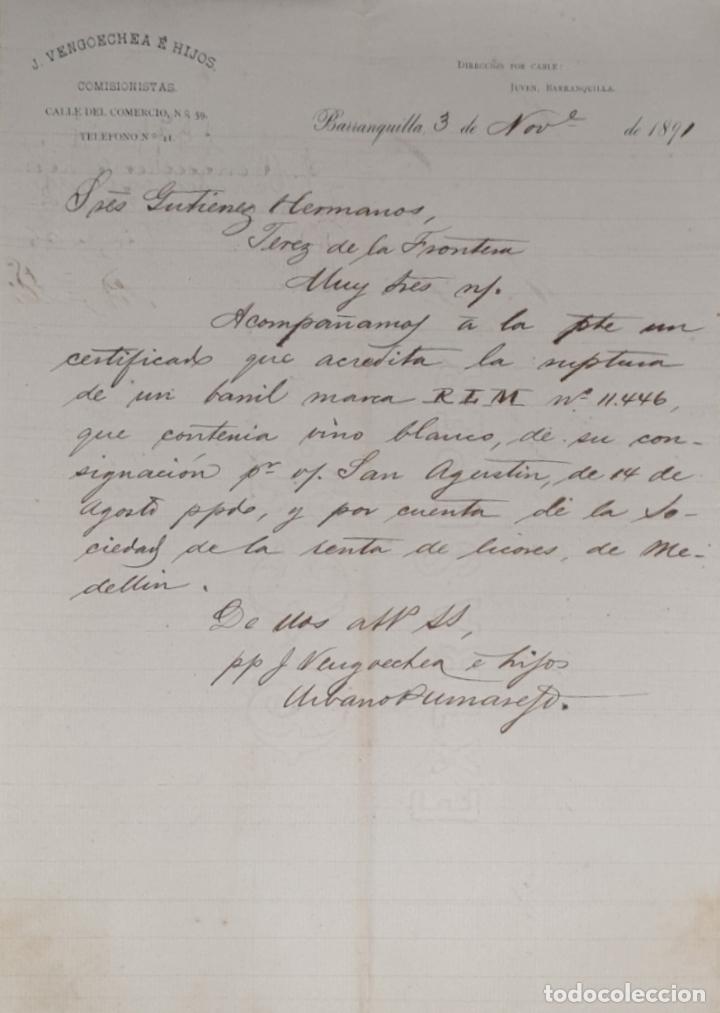 J. VENGOECHEA É HIJOS.
COMISIONISTAS.
CALLE DEL COMERCIO, Nº 59.
TELEFONO Nº 11.
DIRECCIÓN POR CABLE:
JUVEN, BARRANQUILLA.
Barranquilla, 3 de Nove de 1891
Sres Gutierrez Hermanos,
Jerez de la Frontera
Muy sres ns.
Acompañamos á la pte un
certificado que acredita la ruptura
de un barril marca R L M nº 11.446,
que contenia vino blanco, de su con-
signación pr v/. San Agustin, de 14 de
Agosto ppdo, y por cuenta de la So-
ciedad de la renta de licores, de Me-
dellin.
De Uds attos SS,
pp J Vengoechea é hijos
Urbano Pumarejo.
todocoleccion.net